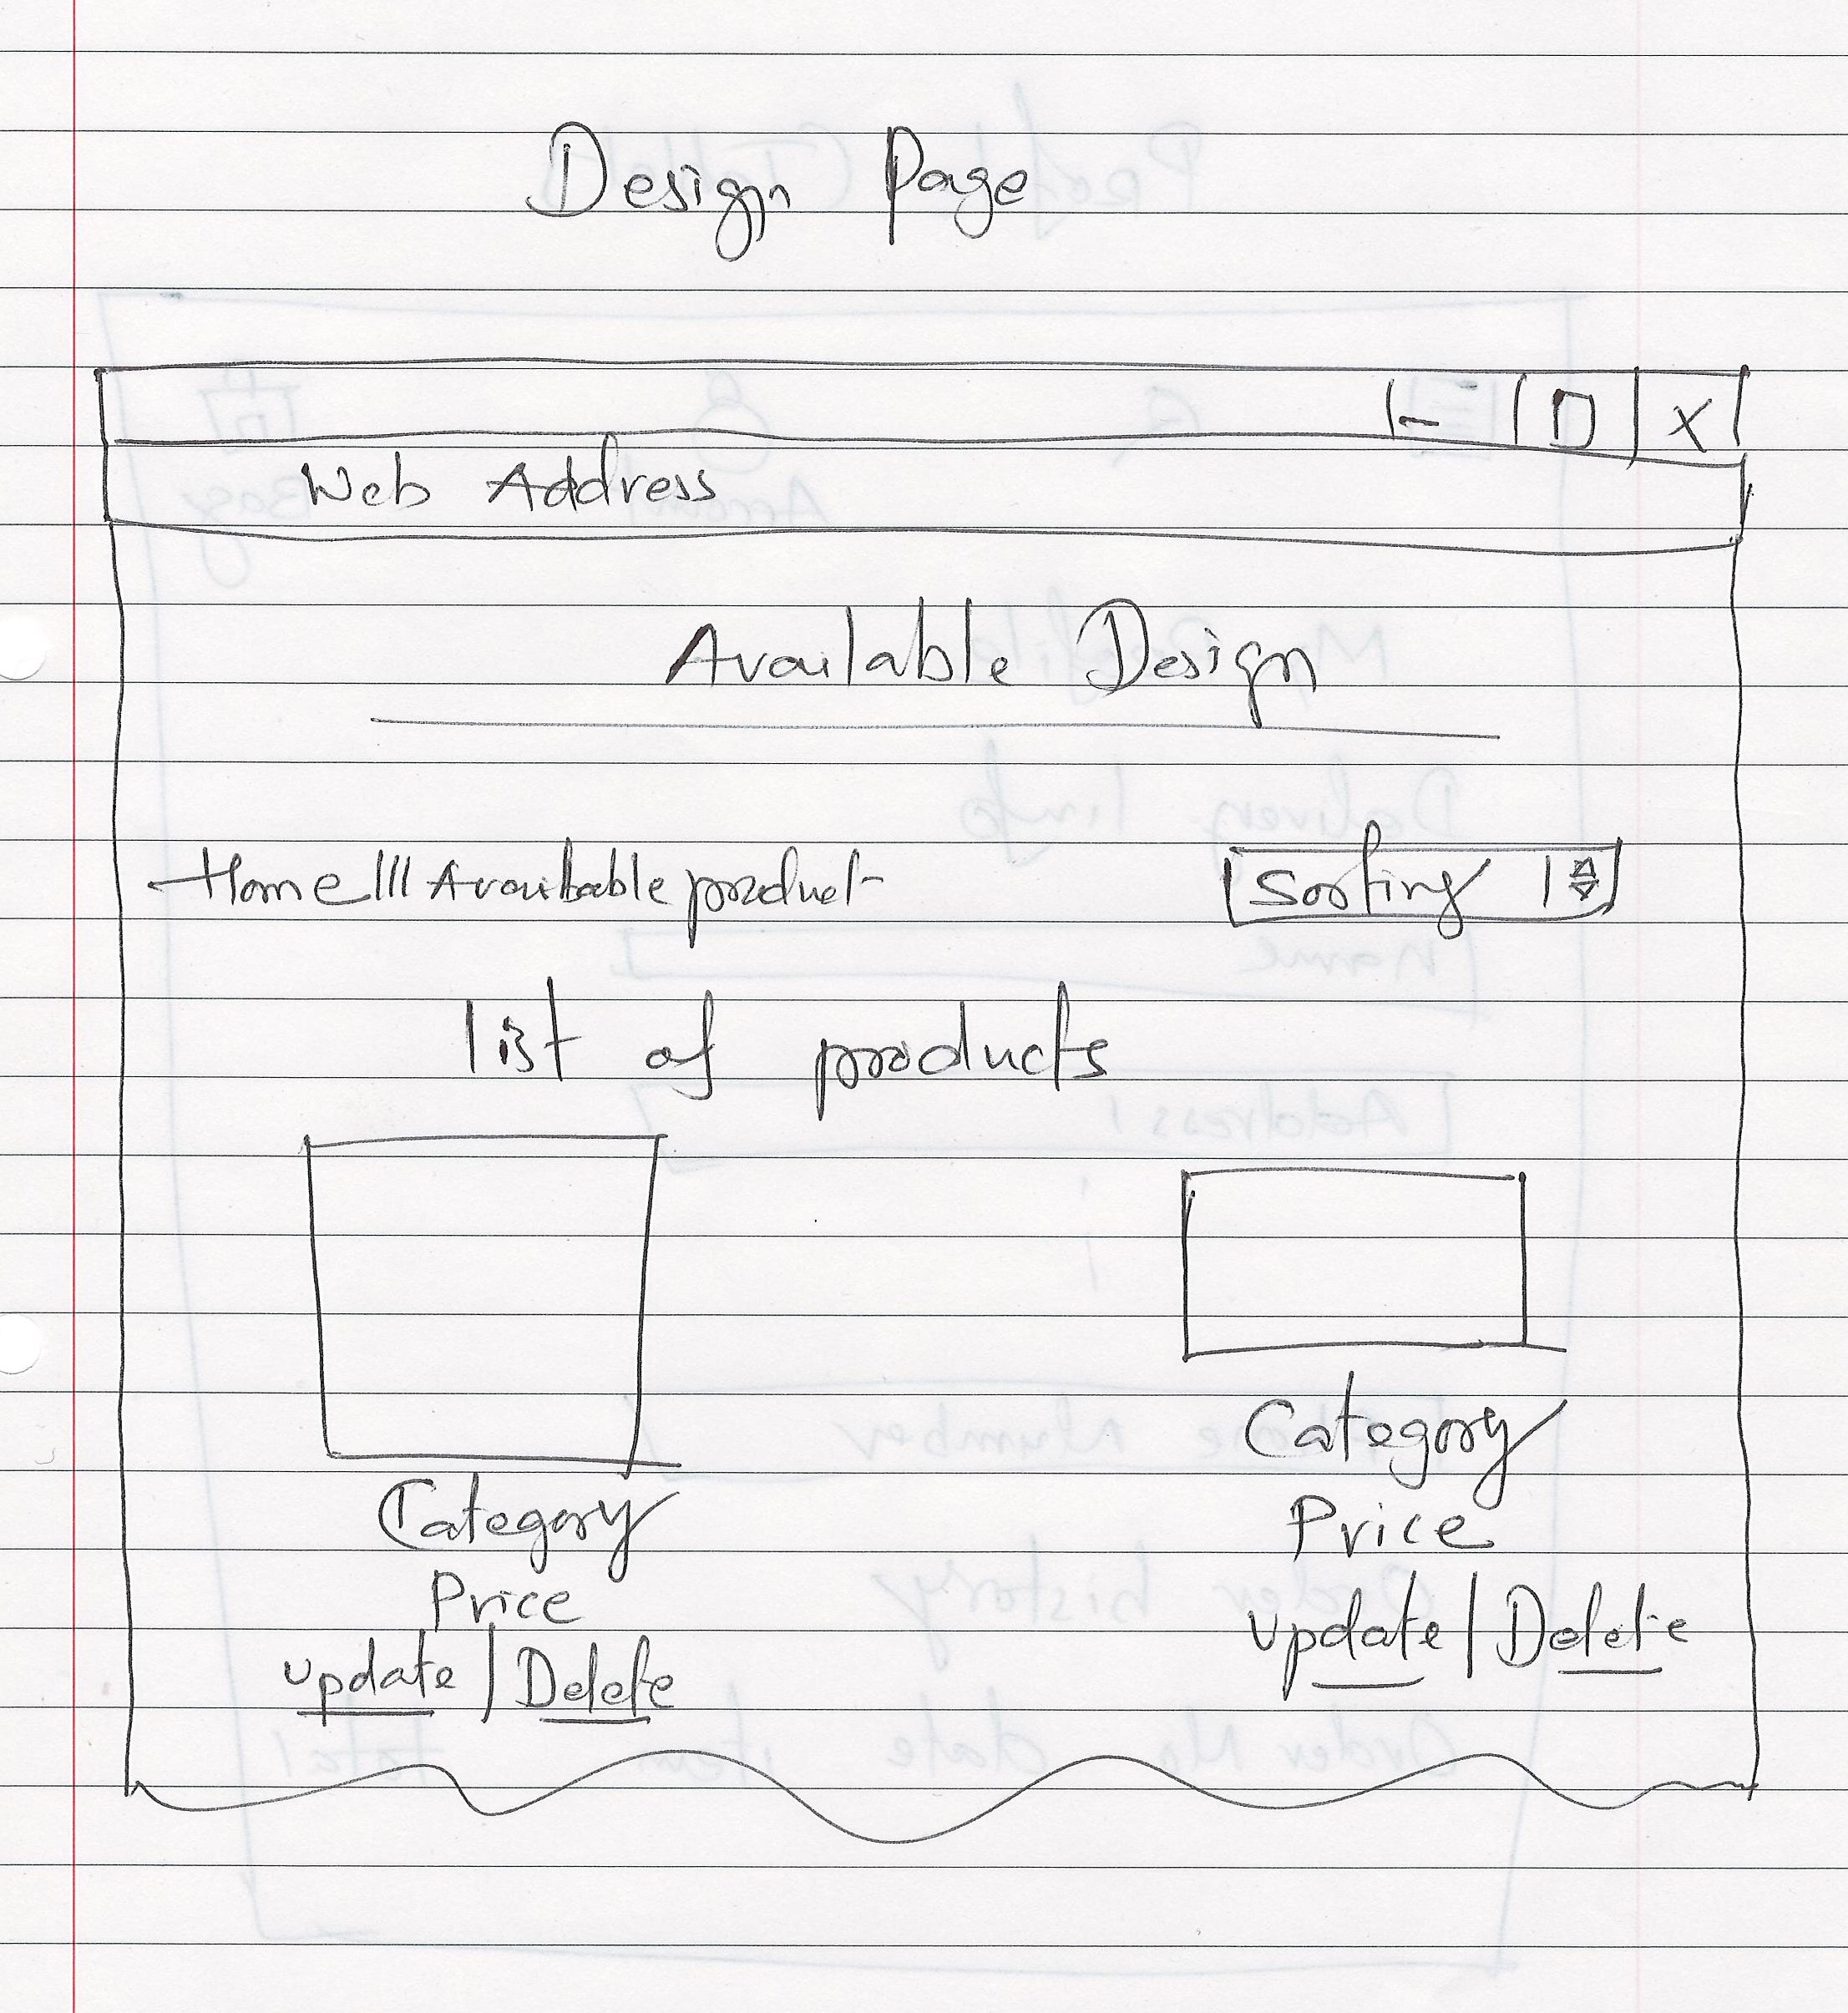 Design Page
Web Address
Available Design
Home||| Available product
Sorting
list of products
Category
Price
update | Delete
Category
Price
update | Delete